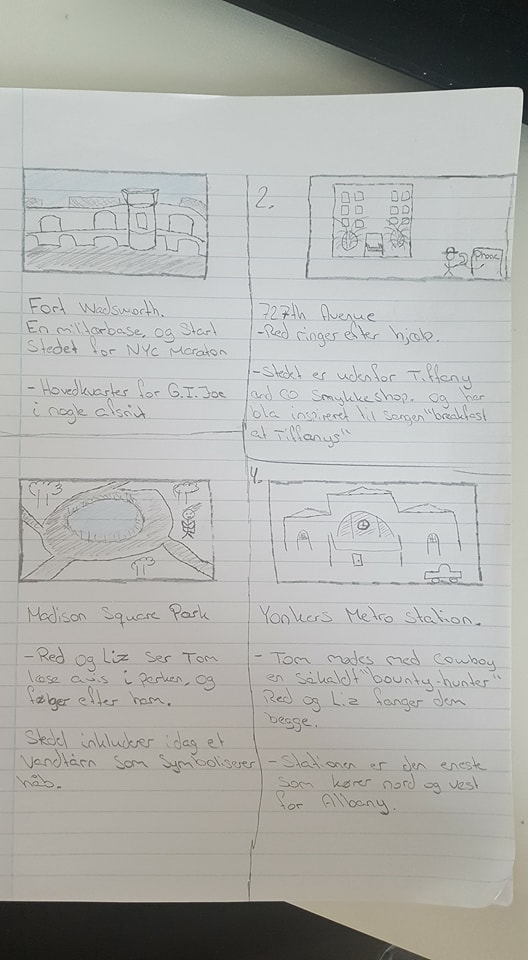 Fort Wadsworth.
En militærbase, og Start
Stedet for NYC Maraton
- Hovedkvarter for G.I. Joe
i nogle afsnit
2.
Phone
727th Avenue
- Red ringer efter hjælp.
- Stedet er udenfor Tiffany
and CO Smykkeshop. og har
bla inspireret til sangen "breakfast
at Tiffanys"
Madison Square Park
- Red og Liz ser Tom
læse avis i parken, og
følger efter ham.
Stedet inkluderer idag et
Vandtårn som symboliserer
håb.
4.
Yonkers Metro Station.
- Tom mødes med Cowboy
en såkaldt "bounty-hunter"
Red og Liz fanger dem
begge.
- Stationen er den eneste
som kører nord og vest
for Albany.